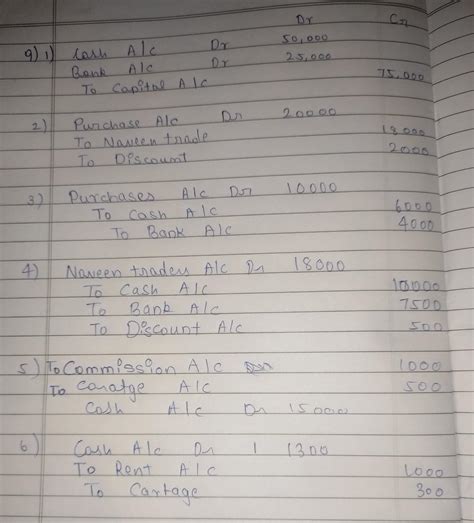 Dr Cr
9) 1) Cash A/c Dr 50,000
Bank A/c Dr 25,000
To Capital A/c 75,000
2) Purchase A/c Dr 20000
To Naveen trade 18,000
To Discount 2000
3) Purchases A/c Dr 10000
To Cash A/c 6000
To Bank A/c 4000
4) Naveen traders A/c Dr 18000
To Cash A/c 10000
To Bank A/c 7500
To Discount A/c 500
5) To Commission A/c 1000
To Caratge A/c 500
Cash A/c Dr 15000
6) Cash A/c Dr 1300
To Rent A/c 1000
To Cartage 300